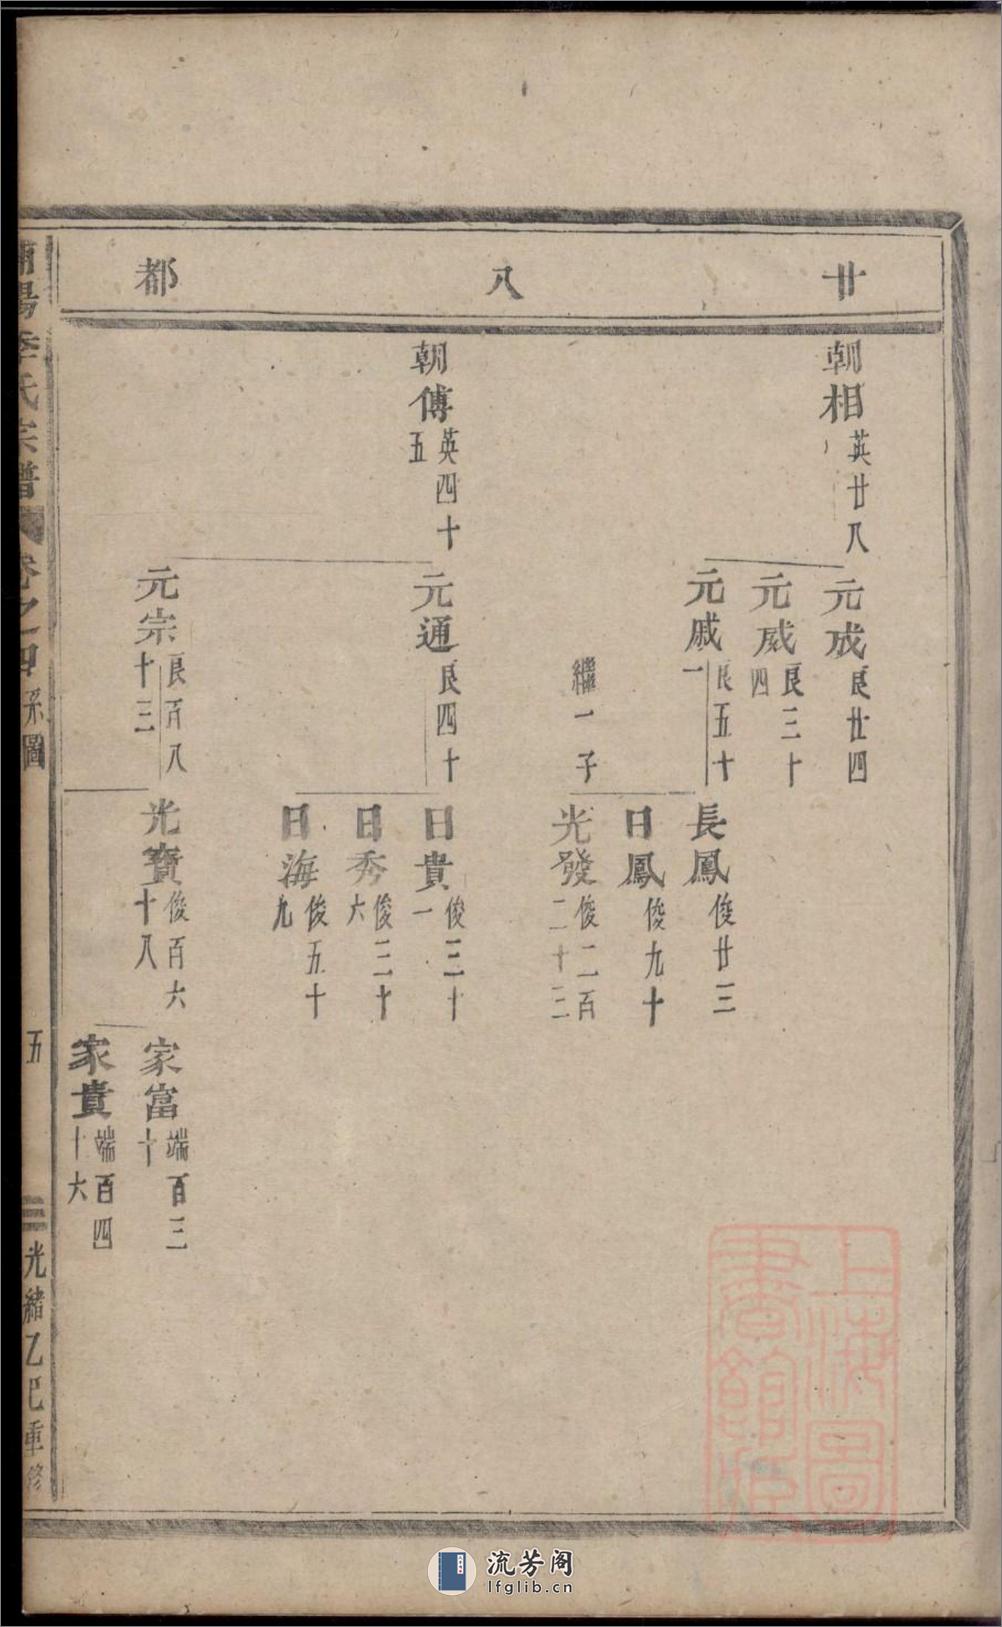 廿八都
朝相 英廿八
元成 良廿四
元威 良三十四
元戚 良五十一
長鳳 俊廿三
日鳳 俊九十
繼一子
光發 俊二百二十三
朝傅 英四十五
元通 良四十
日貴 俊三十一
日秀 俊三十六
日海 俊五十九
元宗 良百八十三
光寶 俊百六十八
家富 端百三十
家貴 端百四十六
陽李氏宗譜 卷之四 系圖
五
光緒乙巳重修
上海圖書館藏
流芳阁
lfglib.cn